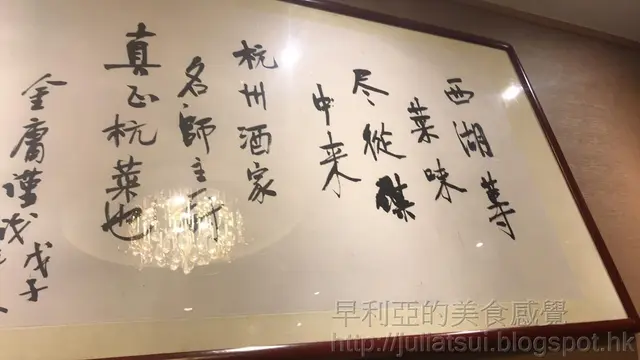 西湖
菜味
尽從
中来
杭州酒家
名師主
真正杭菜也
金庸謹
戊子
早利亞的美食感覺
http://juliatsui.blogspot.hk